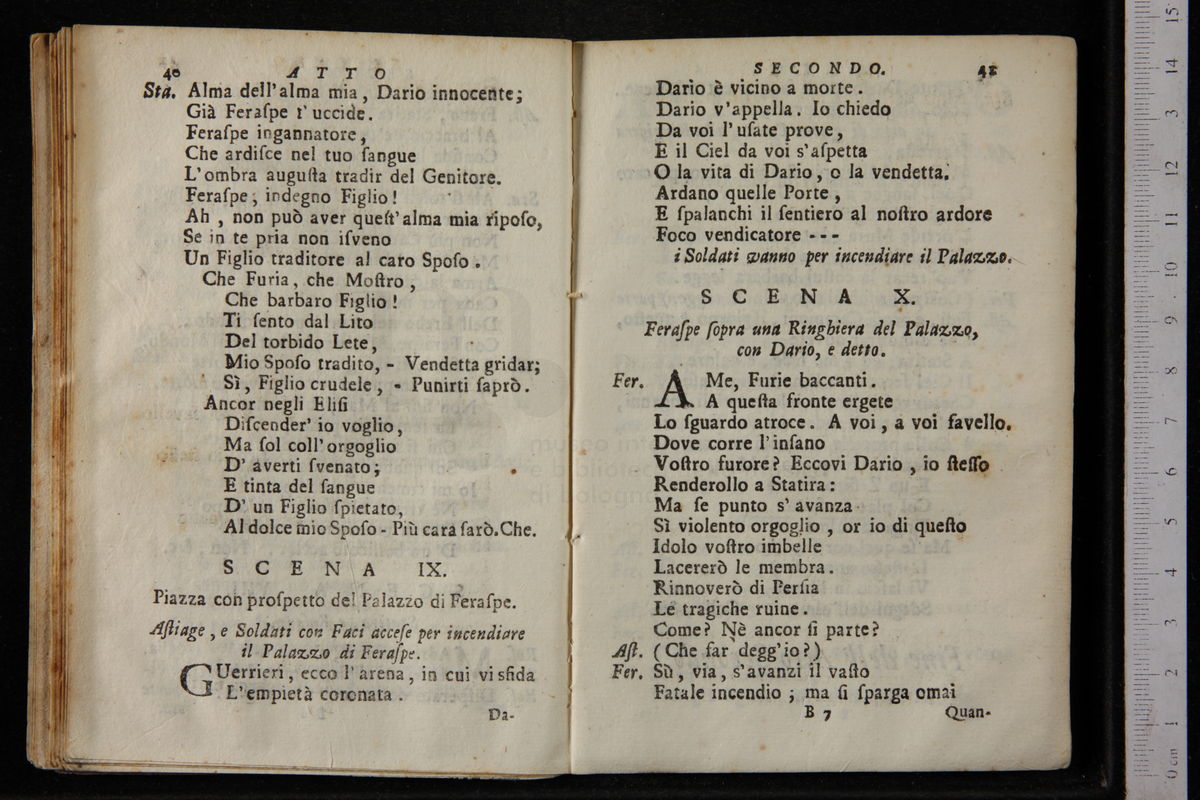 40 ATTO
Sta. Alma dell'alma mia, Dario innocente;
Già Feraſpe t'uccide.
Feraſpe ingannatore,
Che ardiſce nel tuo ſangue
L'ombra auguſta tradir del Genitore.
Feraſpe, indegno Figlio!
Ah, non può aver queſt'alma mia ripoſo,
Se in te pria non iſveno
Un Figlio traditore al caro Spoſo.
Che Furia, che Moſtro,
Che barbaro Figlio!
Ti ſento dal Lito
Del torbido Lete,
Mio Spoſo tradito, - Vendetta gridar;
Sì, Figlio crudele, - Punirti ſaprò.
Ancor negli Eliſi
Diſcender' io voglio,
Ma ſol coll'orgoglio
D'averti ſvenato;
E tinta del ſangue
D'un Figlio ſpietato,
Al dolce mio Spoſo - Più cara ſarò. Che.
SCENA IX.
Piazza con proſpetto del Palazzo di Feraſpe.
Aſtiage, e Soldati con Faci acceſe per incendiare
il Palazzo di Feraſpe.
GUerrieri, ecco l'arena, in cui vi sfida
L'empietà coronata.
Da-
SECONDO. 41
Dario è vicino a morte.
Dario v'appella. Io chiedo
Da voi l'uſate prove,
E il Ciel da voi s'aſpetta
O la vita di Dario, o la vendetta.
Ardano quelle Porte,
E ſpalanchi il ſentiero al noſtro ardore
Foco vendicatore ---
i Soldati vanno per incendiare il Palazzo.
SCENA X.
Feraſpe ſopra una Ringhiera del Palazzo,
con Dario, e detto.
Fer. A Me, Furie baccanti.
A queſta fronte ergete
Lo ſguardo atroce. A voi, a voi favello.
Dove corre l'inſano
Voſtro furore? Eccovi Dario, io ſteſſo
Renderollo a Statira:
Ma ſe punto s'avanza
Sì violento orgoglio, or io di queſto
Idolo voſtro imbelle
Lacererò le membra.
Rinnoverò di Perſia
Le tragiche ruine.
Come? Nè ancor ſi parte?
Aſt. (Che far degg'io?)
Fer. Sù, via, s'avanzi il vaſto
Fatale incendio; ma ſi ſparga omai
B 7 Quan-
15
14
13
12
11
10
9
8
7
6
5
4
3
2
1
0 cm